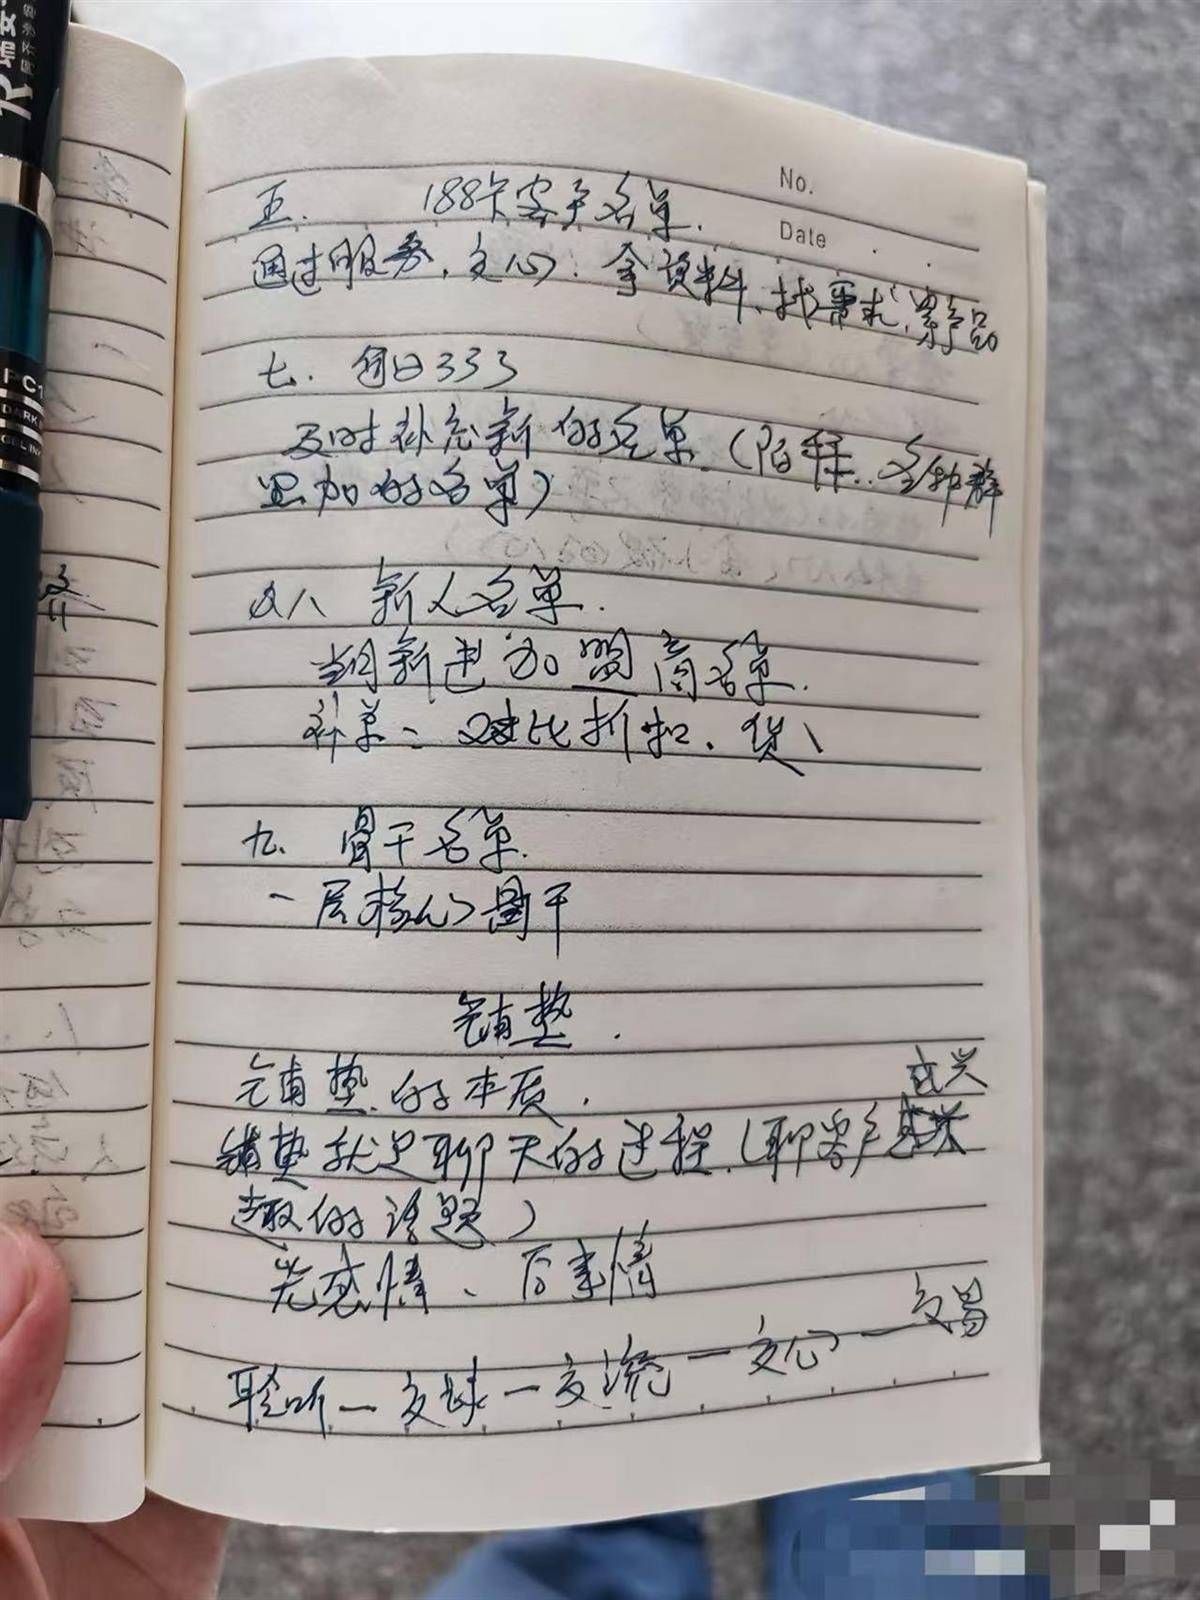 No.
Date
五. 188卡客户名单.
通过服务,交心,拿资料、找需求,索产品
七. 每日333
及时补充新的名单(陌拜..各种群
里加的名单)
八 新人名单.
当月新进加盟商名单.
补单: 对比折扣、货、
九. 骨干名单.
一层核心骨干
铺垫.
铺垫的本质.
铺垫就是聊天的过程.(聊客户感兴
趣的话题)
先感情、后事情
聆听—交球—交流—交心—交易